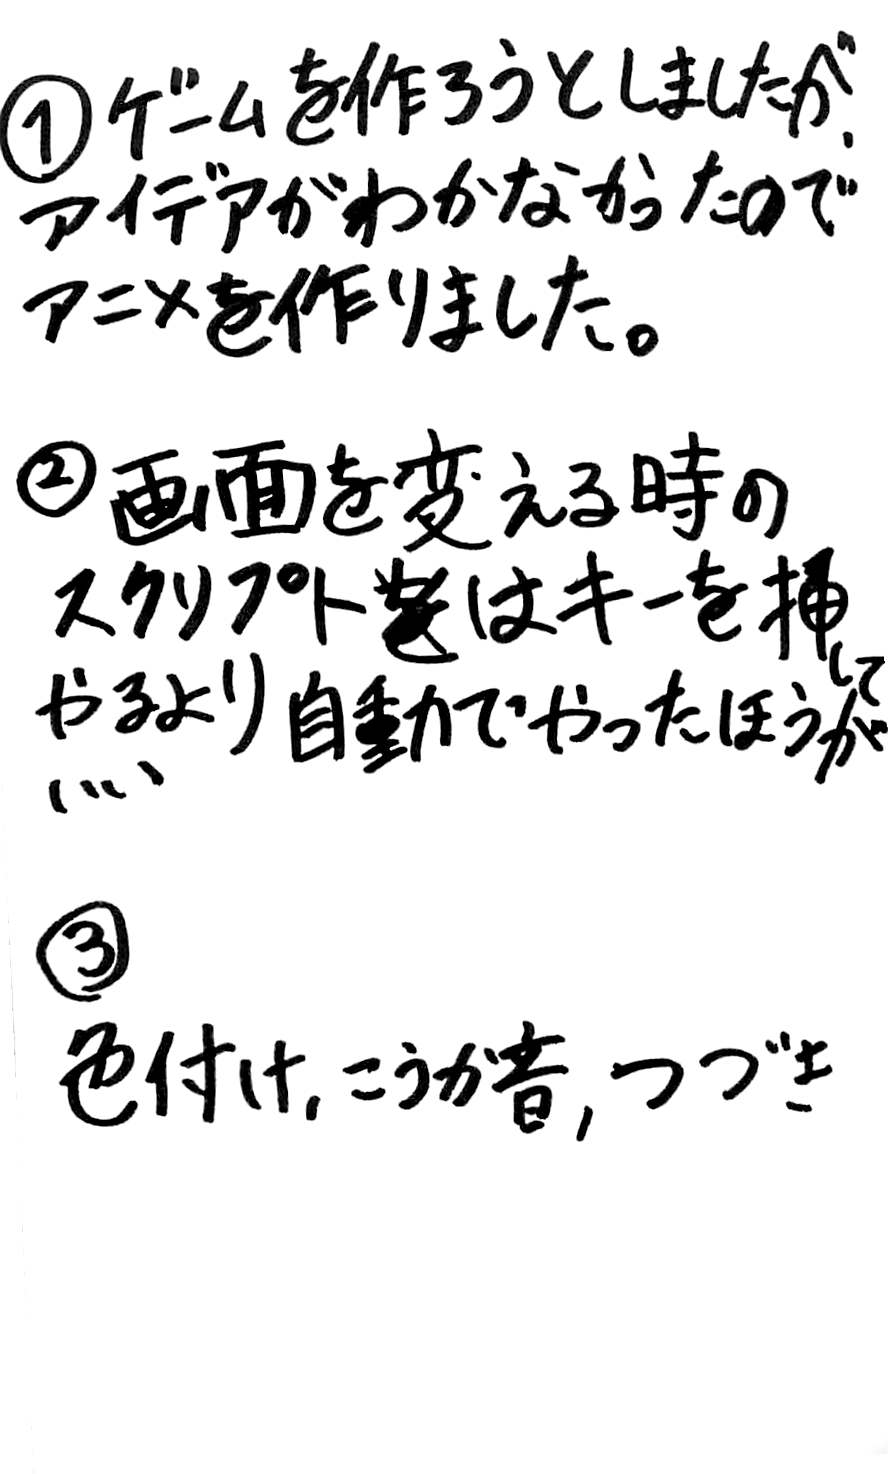 ①ゲームを作ろうとしましたが、
アイデアがわかなかったので
アニメを作りました。
②画面を変える時の
スクリプトはキーを挿して
やるより自動でやったほうが
いい、
③
色付け,こうか音,つづき